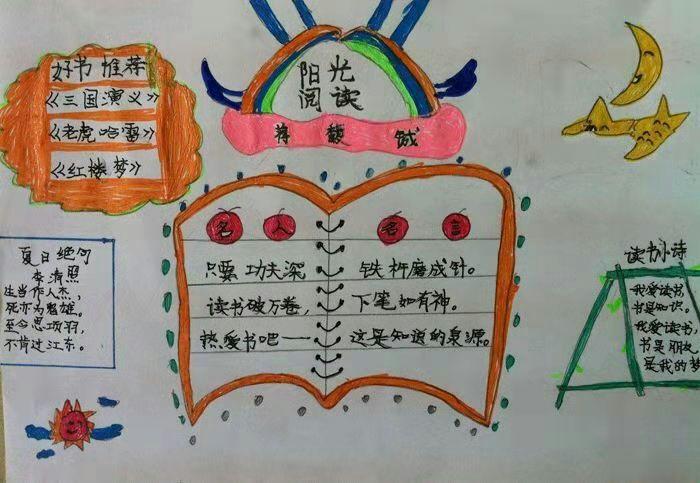 阳光
阅读
好书推荐
《三国演义》
《老虎哈雷》
《红楼梦》
名人名言
只要功夫深 铁杵磨成针。
读书破万卷, 下笔如有神。
热爱书吧—— 这是知道的泉源。
夏日绝句
李清照
生当作人杰,
死亦为鬼雄。
至今思项羽,
不肯过江东。
读书小诗
我爱读书,
书是知识。
我爱读书,
书是朋友
是我的梦